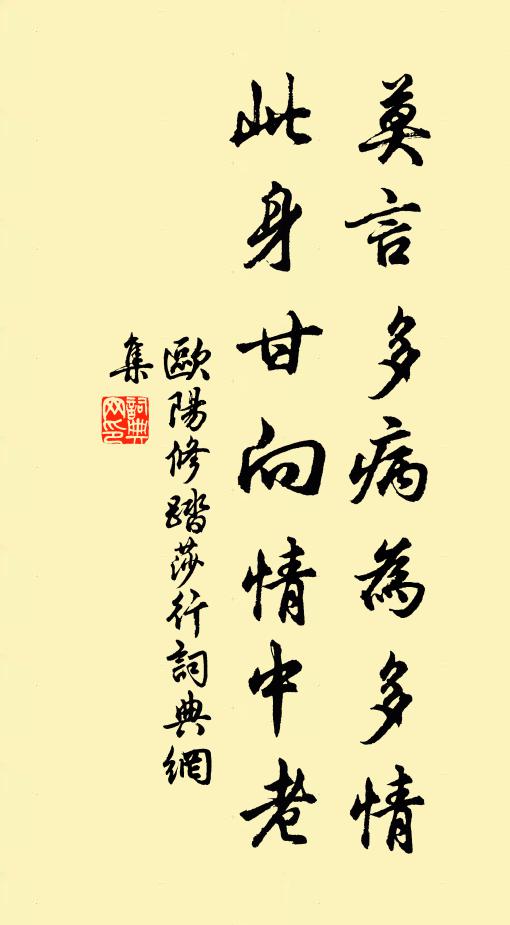 莫言多病為多情
此身甘向情中老
歐陽修踏莎行詞典網
集
詞典
網印